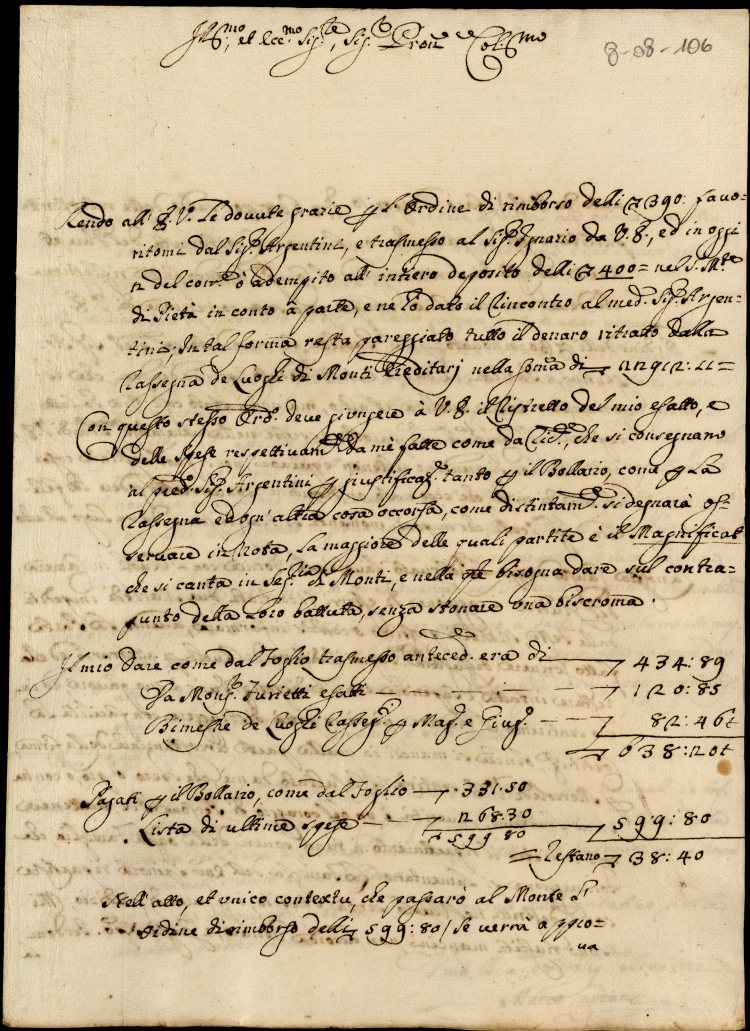 Ill.mo, et Ecc.mo Sig.re, Sig.r Pron.e Col.mo
3-08-106
Rendo all' E. V. le dovute grazie p l'Ordine di rimborso delli 390: favo=
ritomi dal Sig.r Argentini, e trasmesso al Sig.r Ignazio da V. E., ed in oggi
12 del corr.e ò adempito all' intiero deposito delli 400= nel S. M.te
di Pietà in conto à parte, e ne hò dato il Rincontro al med.o Sig.r Argen=
tini; In tal forma resta pareggiato tutto il denaro ritratto dalla
Rassegna de Luoghi di Monti Ereditarj nella somma di 12912: 11=
Con questo stesso Ord.o deve giungere à V. E. il Ristretto del mio esatto, e
delle spese respettivam.te da mè fatte come da Rid.o, che si consegnano
al pred.o Sig.r Argentini p giustificaz.e tanto p il Bollario, come p la
Rassegna ed ogn' altra cosa occorsa, come distintam.te si degnarà os=
servare in Nota, la maggiore delle quali partite è il Magnificat
che si canta in Seg.ria di Monti, e nella q.le bisogna dare sul contra=
punto della loro battuta, senza stonare una biscroma.
Il mio dare come dal Foglio trasmesso anteced.te era di 434: 89
Da Mons.r Furietti esatti 120: 85
Bimestre de Luoghi Rasseg.ti p Mag.o e Giug.o 82: 46t
638: 20t
Pagati p il Bollario, come dal Foglio 331.50
Lista di ultime spese 268.30
599 80 599: 80
Restano 38: 40
Nell' atto, et unico contextu, che passarò al Monte l'
Ordine di rimborso delli 599: 80/ se verrà appro=
va